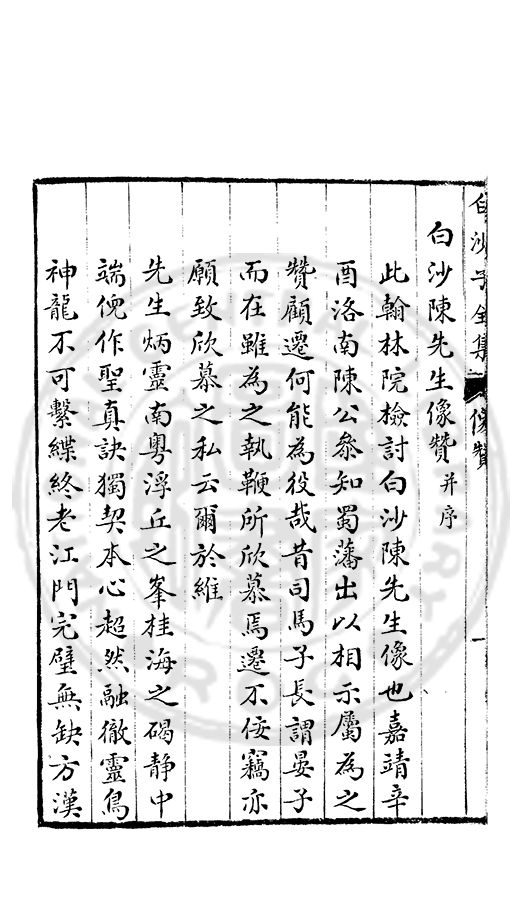 白沙子全集 像贊 一
白沙陳先生像贊 并序
此翰林院檢討白沙陳先生像也嘉靖辛
酉洛南陳公叅知蜀藩出以相示屬為之
贊顧遷何能為役哉昔司馬子長謂晏子
而在雖為之執鞭所欣慕焉遷不佞竊亦
願致欣慕之私云爾於維
先生炳靈南粵浮丘之峯桂海之碣静中
端倪作聖真訣獨契本心超然融徹靈鳥
神龍不可繫緤終老江門完璧無缺方漢